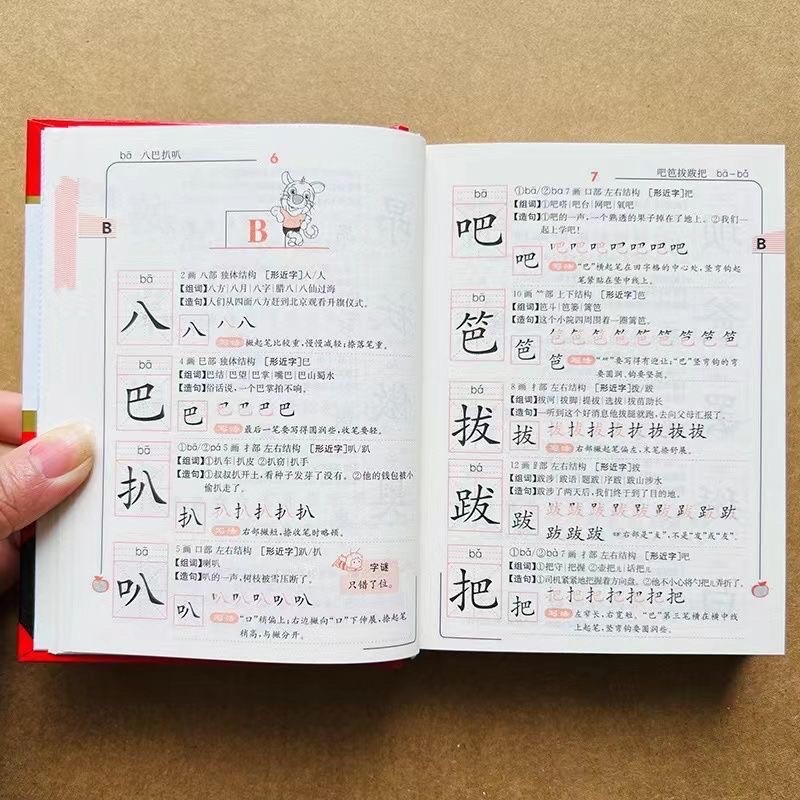 bā 八巴扒叭
6
B
B
bā
八
2 画 八部 独体结构 [形近字]人/入
【组词】八方|八月|八字|腊八|八仙过海
【造句】人们从四面八方赶到北京观看升旗仪式。
八 八八
写法 撇起笔比较重,慢慢减轻;捺落笔重。
bā
巴
4 画 巳部 独体结构 [形近字]巳
【组词】巴结|巴望|巴掌|嘴巴|巴山蜀水
【造句】俗话说,一个巴掌拍不响。
巴 巴巴巴巴
写法 最后一笔要写得圆润些,收笔要轻。
bā
扒
①bā/②pá 5 画 扌部 左右结构 [形近字]叭/趴
【组词】①扒车|扒皮 ②扒窃|扒手
【造句】①叔叔扒开土,看种子发芽了没有。②他的钱包被小
偷扒走了。
扒 扒扒扒扒扒
写法 右部撇短,捺收笔时略顿。
bā
叭
5 画 口部 左右结构 [形近字]趴/扒
【组词】喇叭
【造句】叭的一声,树枝被雪压断了。
字谜
只错了位。
叭 叭叭叭叭叭
写法 “口”稍偏上;右边撇向“口”下伸展,捺起笔
稍高,与撇分开。
7
吧笆拔跋把 bā-bǎ
B
bā
吧
①bā/②ba 7 画 口部 左右结构 [形近字]把
【组词】①吧嗒|吧台|网吧|氧吧
【造句】①吧的一声,一个熟透的果子掉在了地上。②我们一
起上学吧!
吧 吧吧吧吧吧吧吧
写法 “巴”横起笔在田字格的中心处,竖弯钩起
笔紧贴在竖中线上。
bā
笆
10 画 ⺮部 上下结构 [形近字]芭
【组词】笆斗|笆篓|篱笆
【造句】这个小院四周围着一圈篱笆。
笆 笆笆笆笆笆笆笆笆笆
笆 写法 “⺮”要写得有迎让;“巴”竖弯钩的弯
要圆润、钩要坚挺。
bá
拔
8 画 扌部 左右结构 [形近字]拨/跋
【组词】拔河|拔脚|提拔|选拔|拔苗助长
【造句】一听到这个好消息他拔腿就跑,去向父母汇报了。
拔 拔拔拔拔拔拔拔拔
写法 右部撇起笔偏左,末笔捺舒展。
bá
跋
12 画 ⻊部 左右结构 [形近字]拔
【组词】跋涉|跋语|题跋|序跋|跋山涉水
【造句】跋涉了两天后,我们终于到了目的地。
跋 跋跋跋跋跋跋跋跋跋
跋跋跋 右部是“犮”,不是“发”或“友”。
bǎ
把
①bǎ/②bà 7 画 扌部 左右结构 [形近字]吧
【组词】①把守|把握 ②壶把儿|话把儿
【造句】①司机紧紧地把握着方向盘。②他不小心将勺把儿弄折了。
把 把把把把把把把
写法 左窄长,右宽短。“巴”第三笔横在横中线
上起笔,竖弯钩要圆润些。